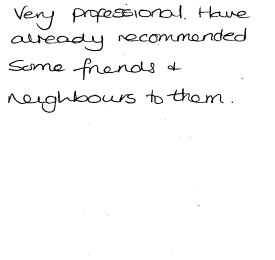 Very professional. Have
already recommended
some friends &
neighbours to them.